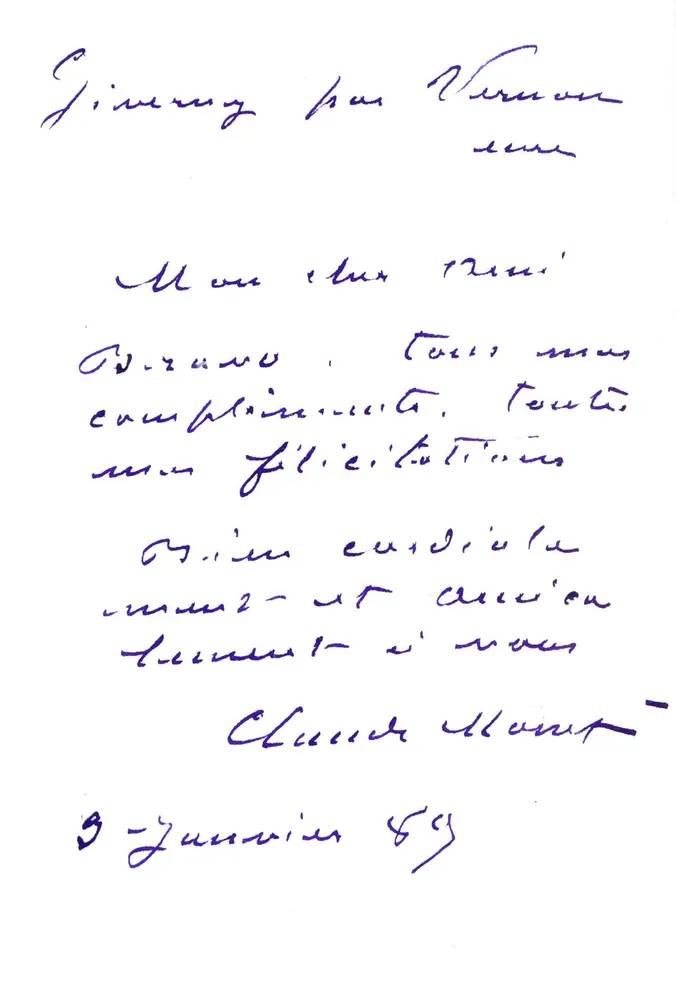 Giverny par Vernon
eure
Mon cher René
Bravo. Tous mes
compliments. toutes
mes félicitations
Bien cordiale
ment et amica
lement à vous
Claude Monet
3 Janvier 89